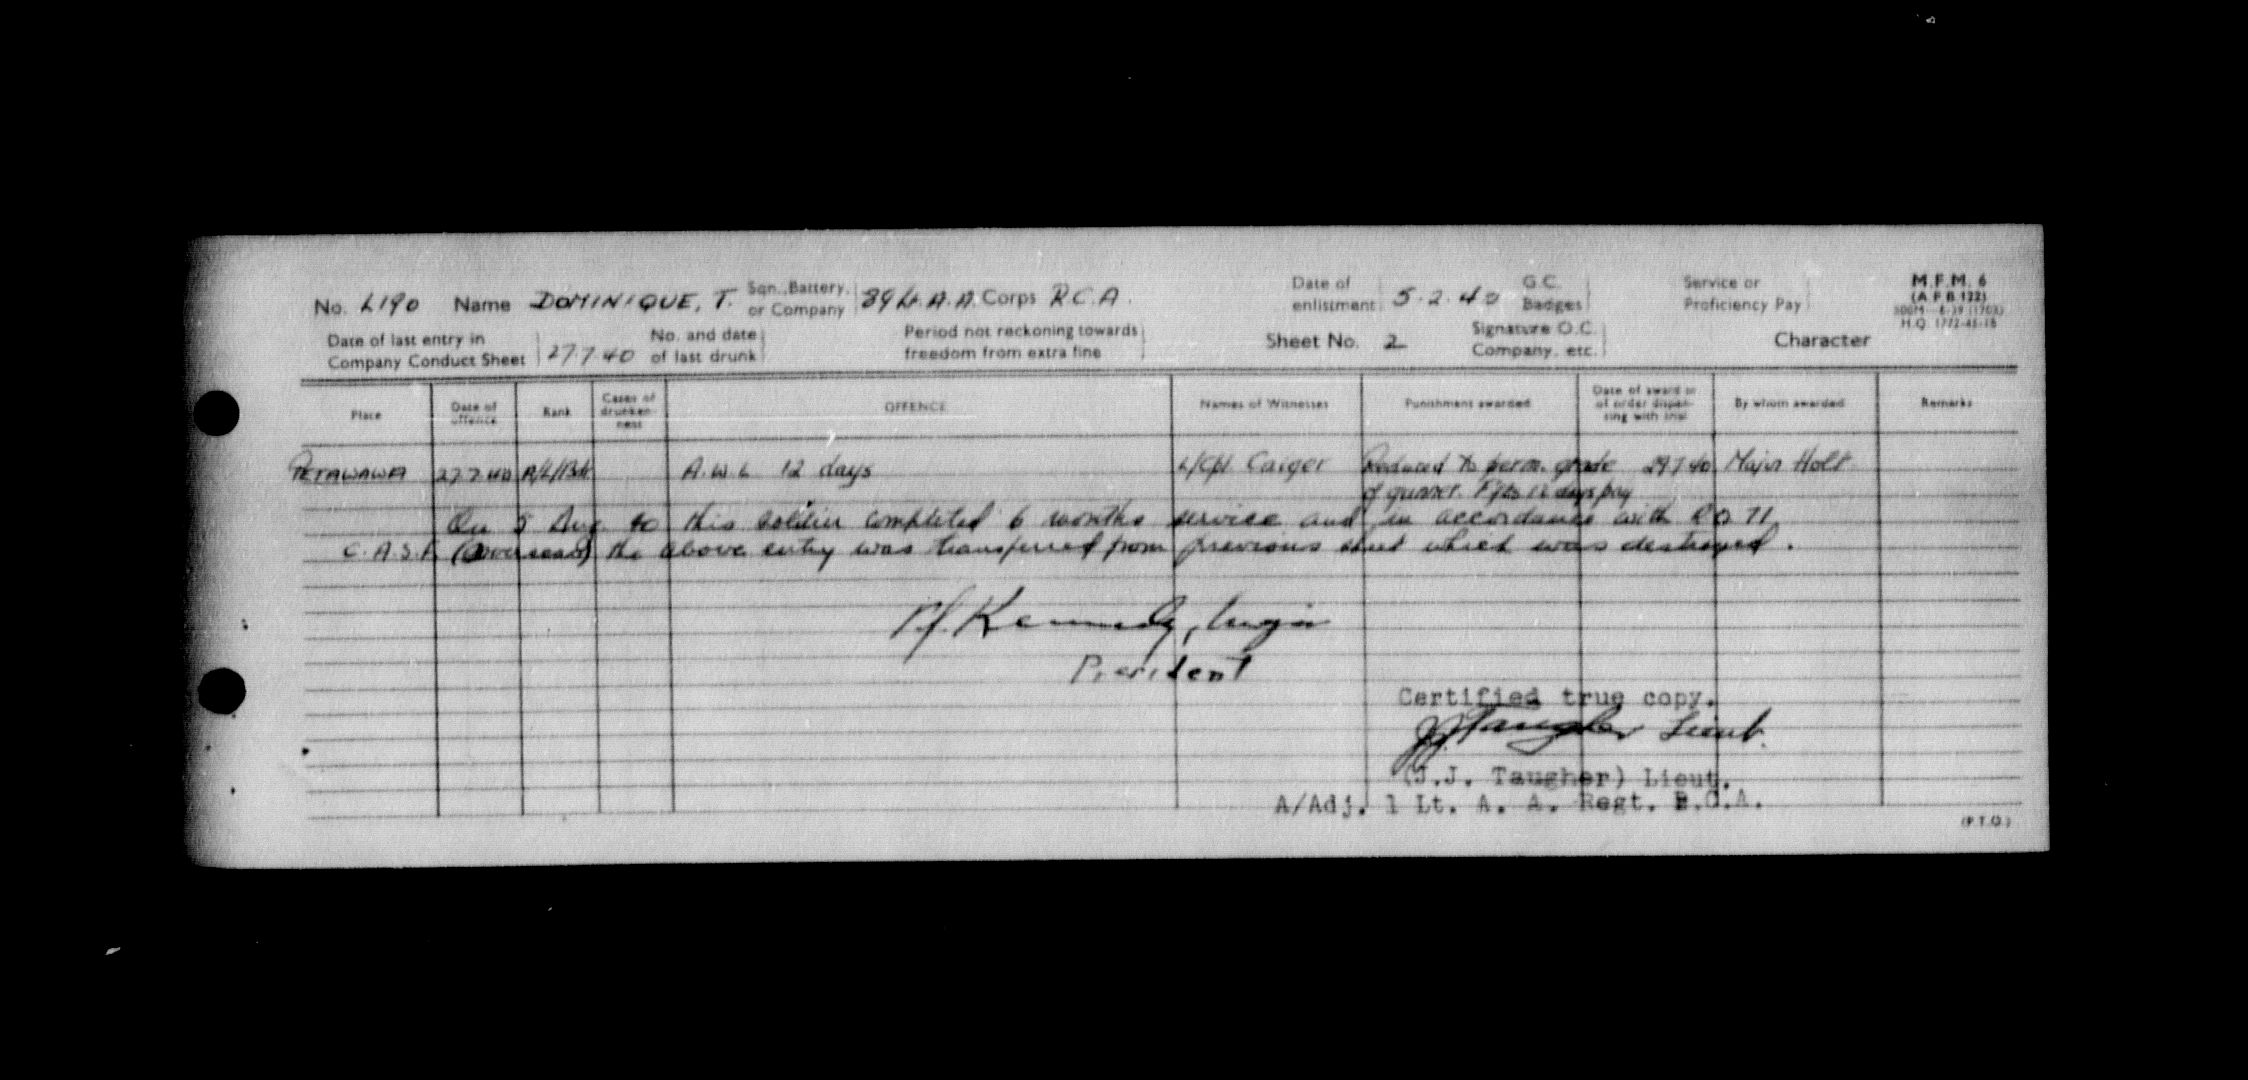 No. L190 Name DOMINIQUE, T. Sqn., Battery, or Company 89 Lt. A. A. Corps R.C.A. Date of enlistment 5.2.40 G.C. Badges Service or Proficiency Pay M.F.M. 6
(A.F.B. 122)
H.Q. 1772-45-16
Date of last entry in Company Conduct Sheet 27.7.40 No. and date of last drunk Period not reckoning towards freedom from extra fine Sheet No. 2 Signature O.C. Company, etc. Character
Place Date of offence Rank Cases of drunkenness OFFENCE Names of Witnesses Punishment awarded Date of award or of order dispensing with trial By whom awarded Remarks
PETAWAWA 27.7.40 A/L/Bdr A.W.L 12 days L/Cpl Caiger Reduced to perm. grade 29.7.40 Major Holt
of gunner. Ffts 12 days pay
On 5 Aug 40 this soldier completed 6 months service and in accordance with RO 71
C.A.S.F. (Overseas) the above entry was transferred from previous sheet which was destroyed.
Kennedy, Major
President
Certified true copy.
JJ Taugher Lieut.
(J.J. Taugher) Lieut.
A/Adj. 1 Lt. A. A. Regt. R.C.A.
(P.T.O.)